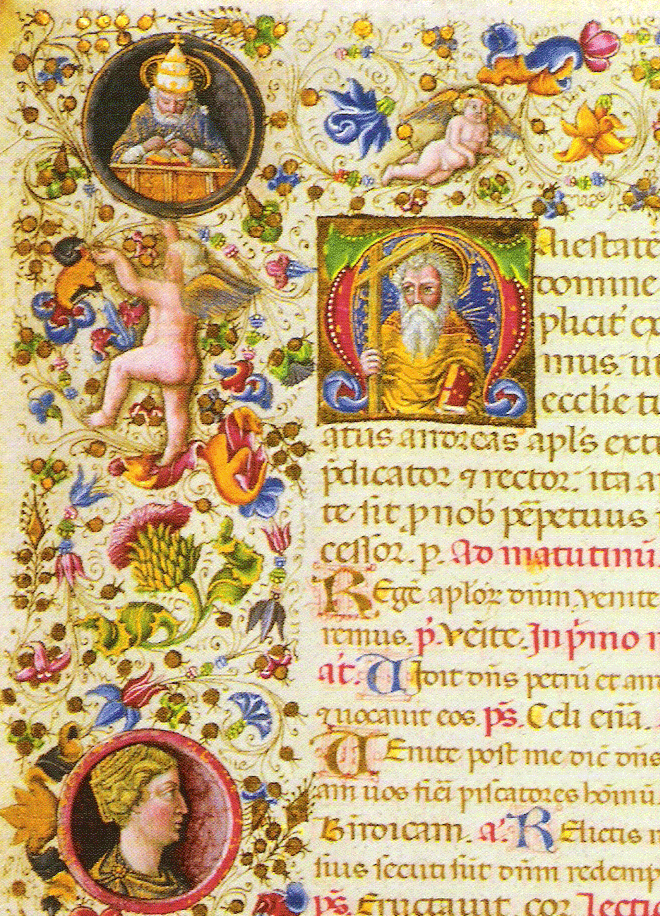 Maiestatē
domine
plicit ex
mus. ut
ecclie tu
atus andreas apl̄s extı
p̄dicator ⁊ rector. ita a
te sit p nob̄ pp̄etuus
cessor. p. Ad matutinū.
Regē apl̄oꝝ dn̄m. venite
remus. p̄. Veīte. In p̄mo n
at. Uidit dn̄s petrū et an
⁊ uocauit eos. ps̄. Celi en̄a.
Uenite post me dic̄ dn̄s
am uos fieī piscatores homīnū.
B̄n̄dicam. a. Relictis r
suis secuti sūt dn̄m redemp
ps̄. Eructauit cor Lectio